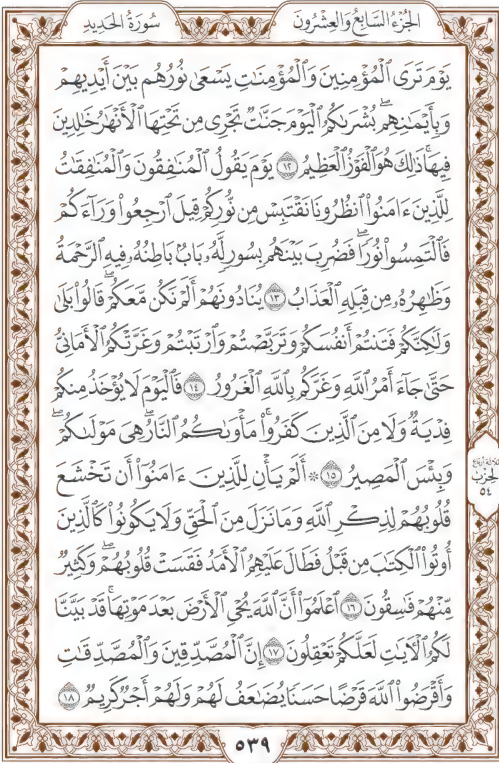 سُورَةُ الحَدِيدِ
الجُزْءُ السَّابِعُ وَالعِشْرُونَ
يَوْمَ تَرَى ٱلْمُؤْمِنِينَ وَٱلْمُؤْمِنَٰتِ يَسْعَىٰ نُورُهُم بَيْنَ أَيْدِيهِمْ
وَبِأَيْمَٰنِهِم بُشْرَىٰكُمُ ٱلْيَوْمَ جَنَّٰتٌ تَجْرِى مِن تَحْتِهَا ٱلْأَنْهَٰرُ خَٰلِدِينَ
فِيهَا ۚ ذَٰلِكَ هُوَ ٱلْفَوْزُ ٱلْعَظِيمُ ١٢ يَوْمَ يَقُولُ ٱلْمُنَٰفِقُونَ وَٱلْمُنَٰفِقَٰتُ
لِلَّذِينَ ءَامَنُوا۟ ٱنظُرُونَا نَقْتَبِسْ مِن نُّورِكُمْ قِيلَ ٱرْجِعُوا۟ وَرَآءَكُمْ
فَٱلْتَمِسُوا۟ نُورًا ۖ فَضُرِبَ بَيْنَهُم بِسُورٍ لَّهُۥ بَابٌۢ بَاطِنُهُۥ فِيهِ ٱلرَّحْمَةُ
وَظَٰهِرُهُۥ مِن قِبَلِهِ ٱلْعَذَابُ ١٣ يُنَادُونَهُمْ أَلَمْ نَكُن مَّعَكُمْ ۖ قَالُوا۟ بَلَىٰ
وَلَٰكِنَّكُمْ فَتَنتُمْ أَنفُسَكُمْ وَتَرَبَّصْتُمْ وَٱرْتَبْتُمْ وَغَرَّتْكُمُ ٱلْأَمَانِىُّ
حَتَّىٰ جَآءَ أَمْرُ ٱللَّهِ وَغَرَّكُم بِٱللَّهِ ٱلْغَرُورُ ١٤ فَٱلْيَوْمَ لَا يُؤْخَذُ مِنكُمْ
فِدْيَةٌ وَلَا مِنَ ٱلَّذِينَ كَفَرُوا۟ ۚ مَأْوَىٰكُمُ ٱلنَّارُ ۖ هِىَ مَوْلَىٰكُمْ ۖ
وَبِئْسَ ٱلْمَصِيرُ ١٥ ۞ أَلَمْ يَأْنِ لِلَّذِينَ ءَامَنُوٓا۟ أَن تَخْشَعَ
قُلُوبُهُمْ لِذِكْرِ ٱللَّهِ وَمَا نَزَلَ مِنَ ٱلْحَقِّ وَلَا يَكُونُوا۟ كَٱلَّذِينَ
أُوتُوا۟ ٱلْكِتَٰبَ مِن قَبْلُ فَطَالَ عَلَيْهِمُ ٱلْأَمَدُ فَقَسَتْ قُلُوبُهُمْ ۖ وَكَثِيرٌ
مِّنْهُمْ فَٰسِقُونَ ١٦ ٱعْلَمُوٓا۟ أَنَّ ٱللَّهَ يُحْىِ ٱلْأَرْضَ بَعْدَ مَوْتِهَا ۚ قَدْ بَيَّنَّا
لَكُمُ ٱلْءَايَٰتِ لَعَلَّكُمْ تَعْقِلُونَ ١٧ إِنَّ ٱلْمُصَّدِّقِينَ وَٱلْمُصَّدِّقَٰتِ
وَأَقْرَضُوا۟ ٱللَّهَ قَرْضًا حَسَنًا يُضَٰعَفُ لَهُمْ وَلَهُمْ أَجْرٌ كَرِيمٌ ١٨
ثلاثة أرباع
الحزب
٥٤
٥٣٩